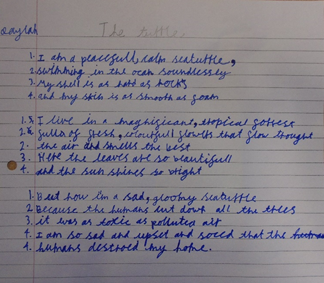 The turtles
aaylah
1. I am a peacefull, calm seaturtle,
2. swimming in the ocan soundlessly
3. My shell is as hard as rocks
4. and my skin is as smooth as foam
1. I live in a magnificant, tropical
2. of fresh, colourfull flowers that flow
2. the air and smells the best
3. Here the leaves are so beautifull
4. and the sun shines so bright
1. But now I'm a sad, gloomy seaturtle
2. Because the humans cut down all the trees
3. it was as toxic as polluted air
4. I am so sad and upset and that the
4. humans destroed my home.